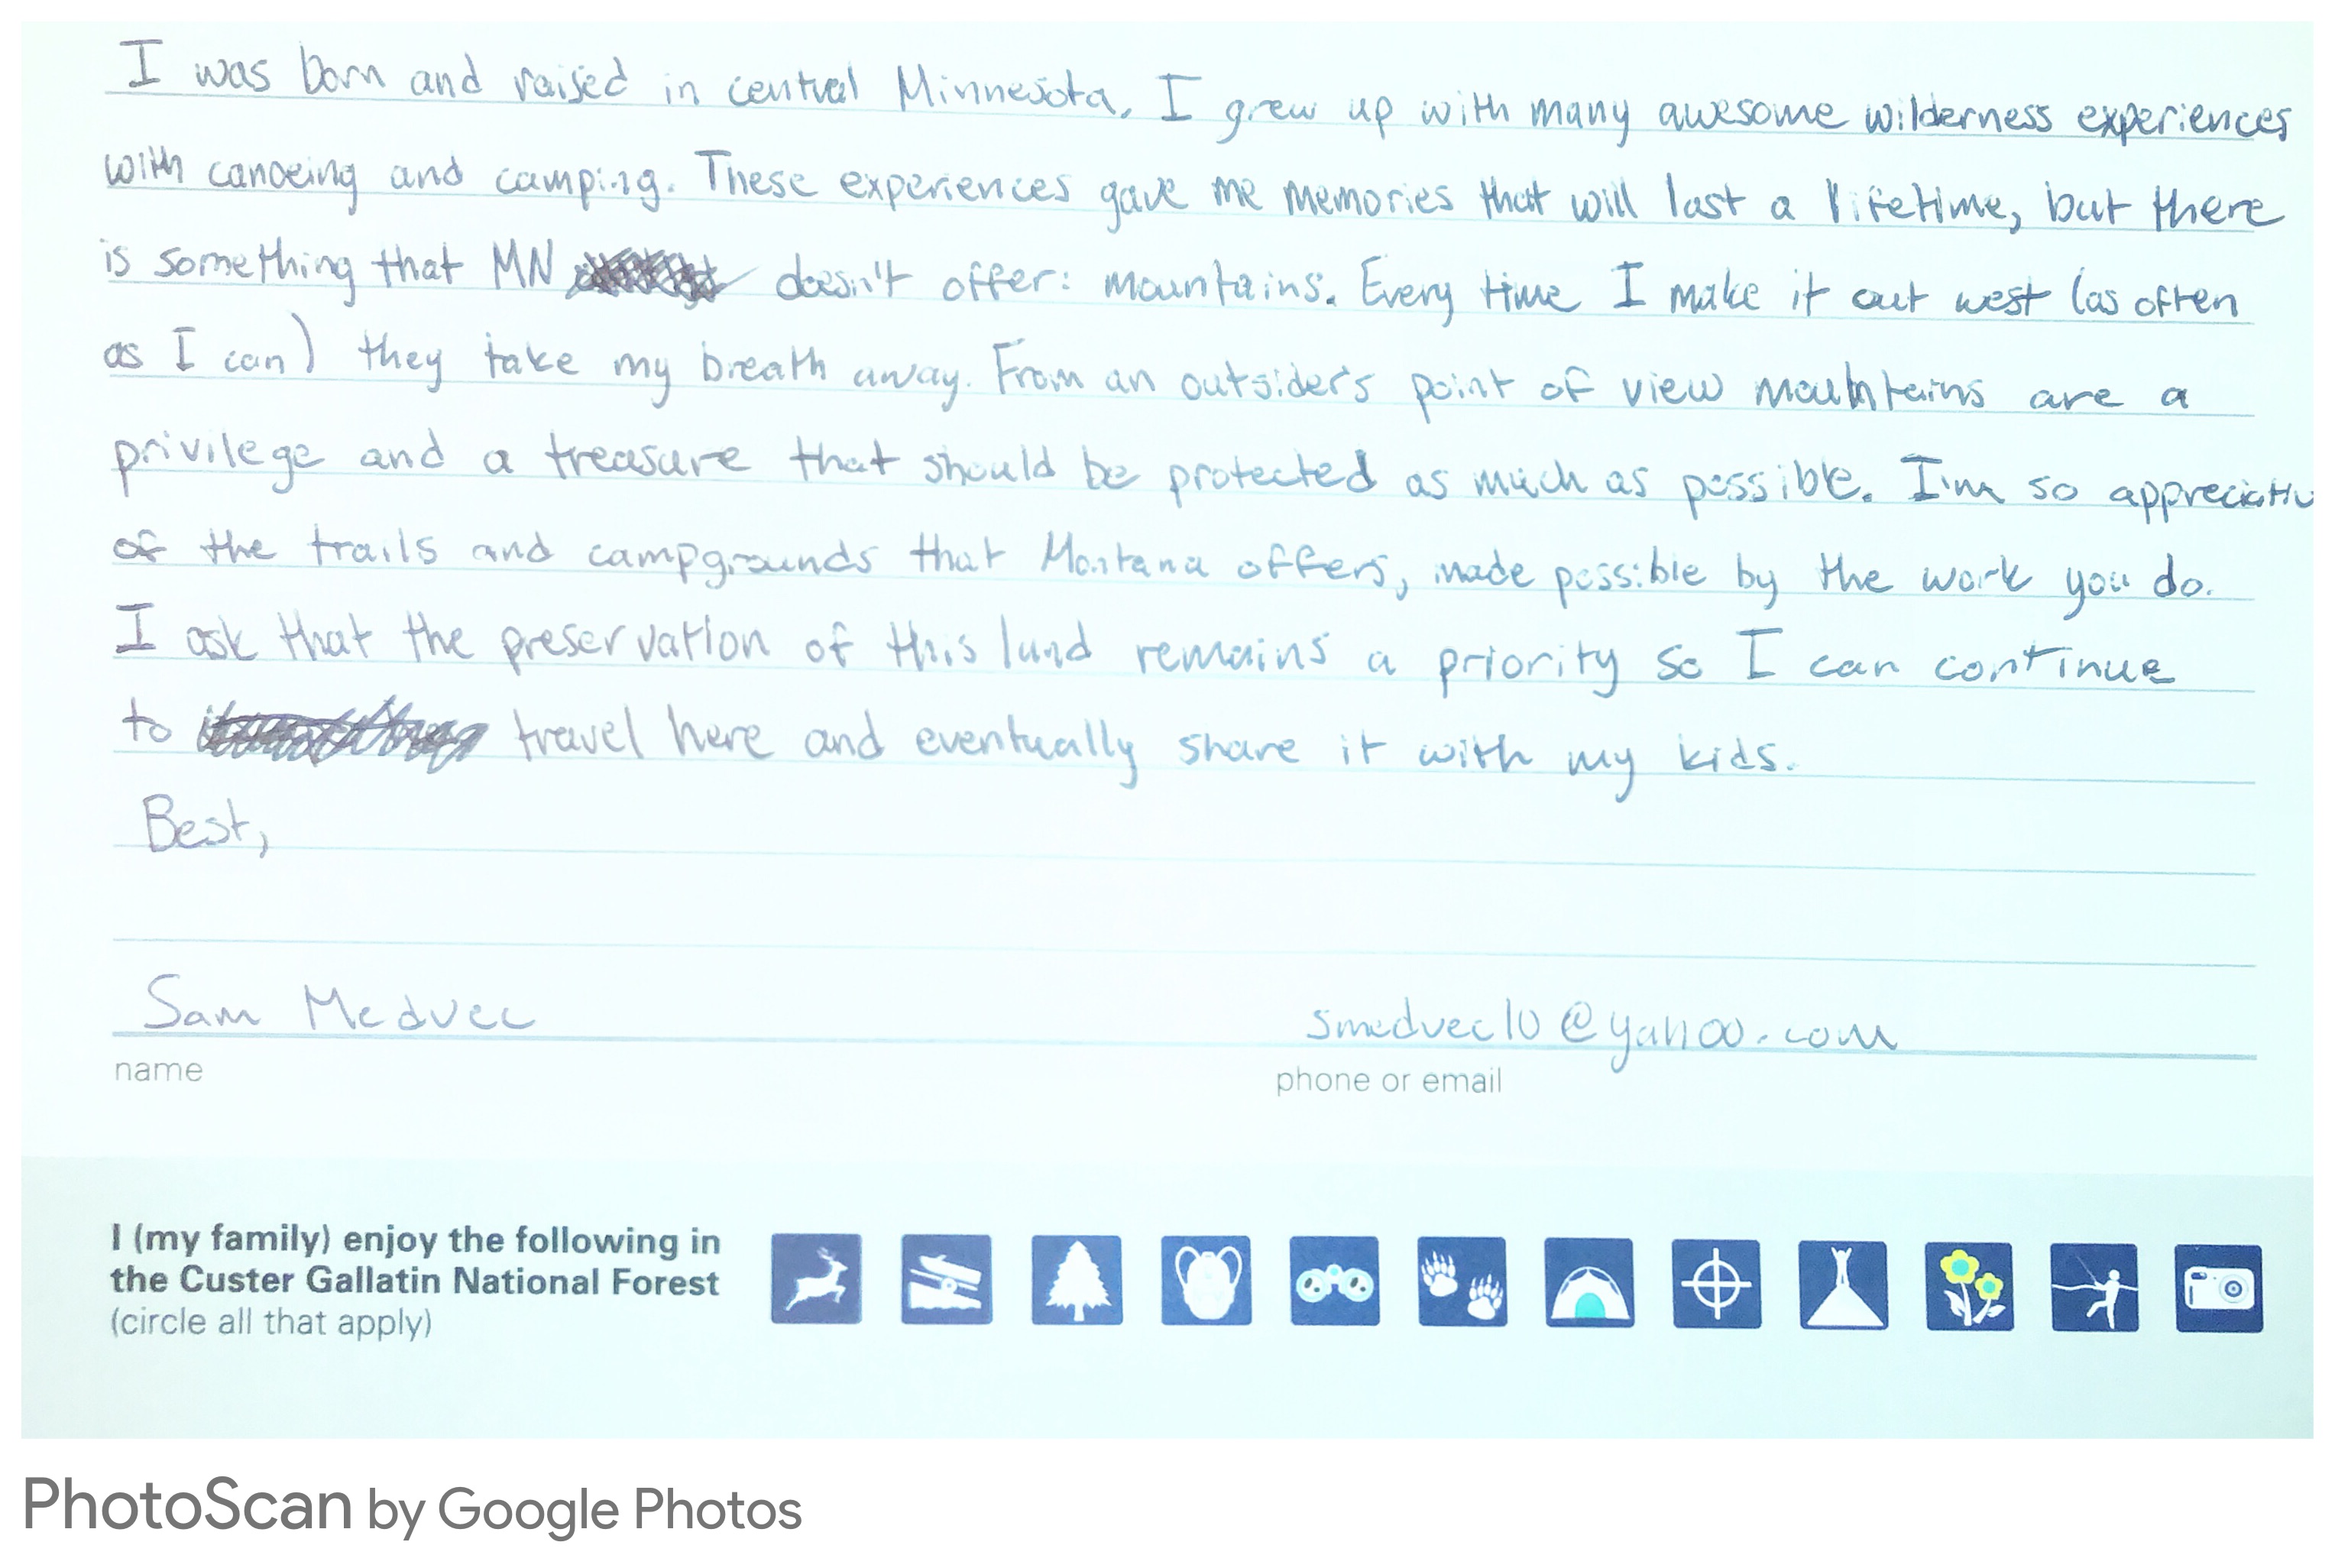 I was born and raised in central Minnesota. I grew up with many awesome wilderness experiences
with canoeing and camping. These experiences gave me memories that will last a lifetime, but there
is something that MN doesn't offer: mountains. Every time I make it out west (as often
as I can) they take my breath away. From an outsider's point of view mountains are a
privilege and a treasure that should be protected as much as possible. I'm so appreciativ
of the trails and campgrounds that Montana offers, made possible by the work you do.
I ask that the preservation of this land remains a priority so I can continue
to travel here and eventually share it with my kids.
Best,
Sam Medvec smedvec10@yahoo.com
name phone or email
I (my family) enjoy the following in
the Custer Gallatin National Forest
(circle all that apply)
PhotoScan by Google Photos